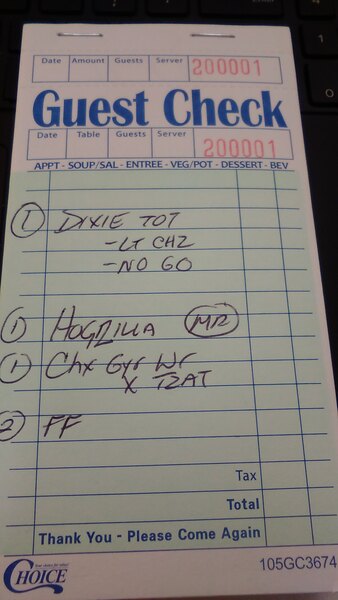 Date Amount Guests Server 200001
Guest Check
Date Table Guests Server 200001
APPT - SOUP/SAL - ENTREE - VEG/POT - DESSERT - BEV
1 DIXIE TOT
- LT CHZ
- NO GO
1 HOGZILLA MR
1 Chx Gyr Wr
X TZAT
2 FF
Tax
Total
Thank You - Please Come Again
CHOICE
105GC3674